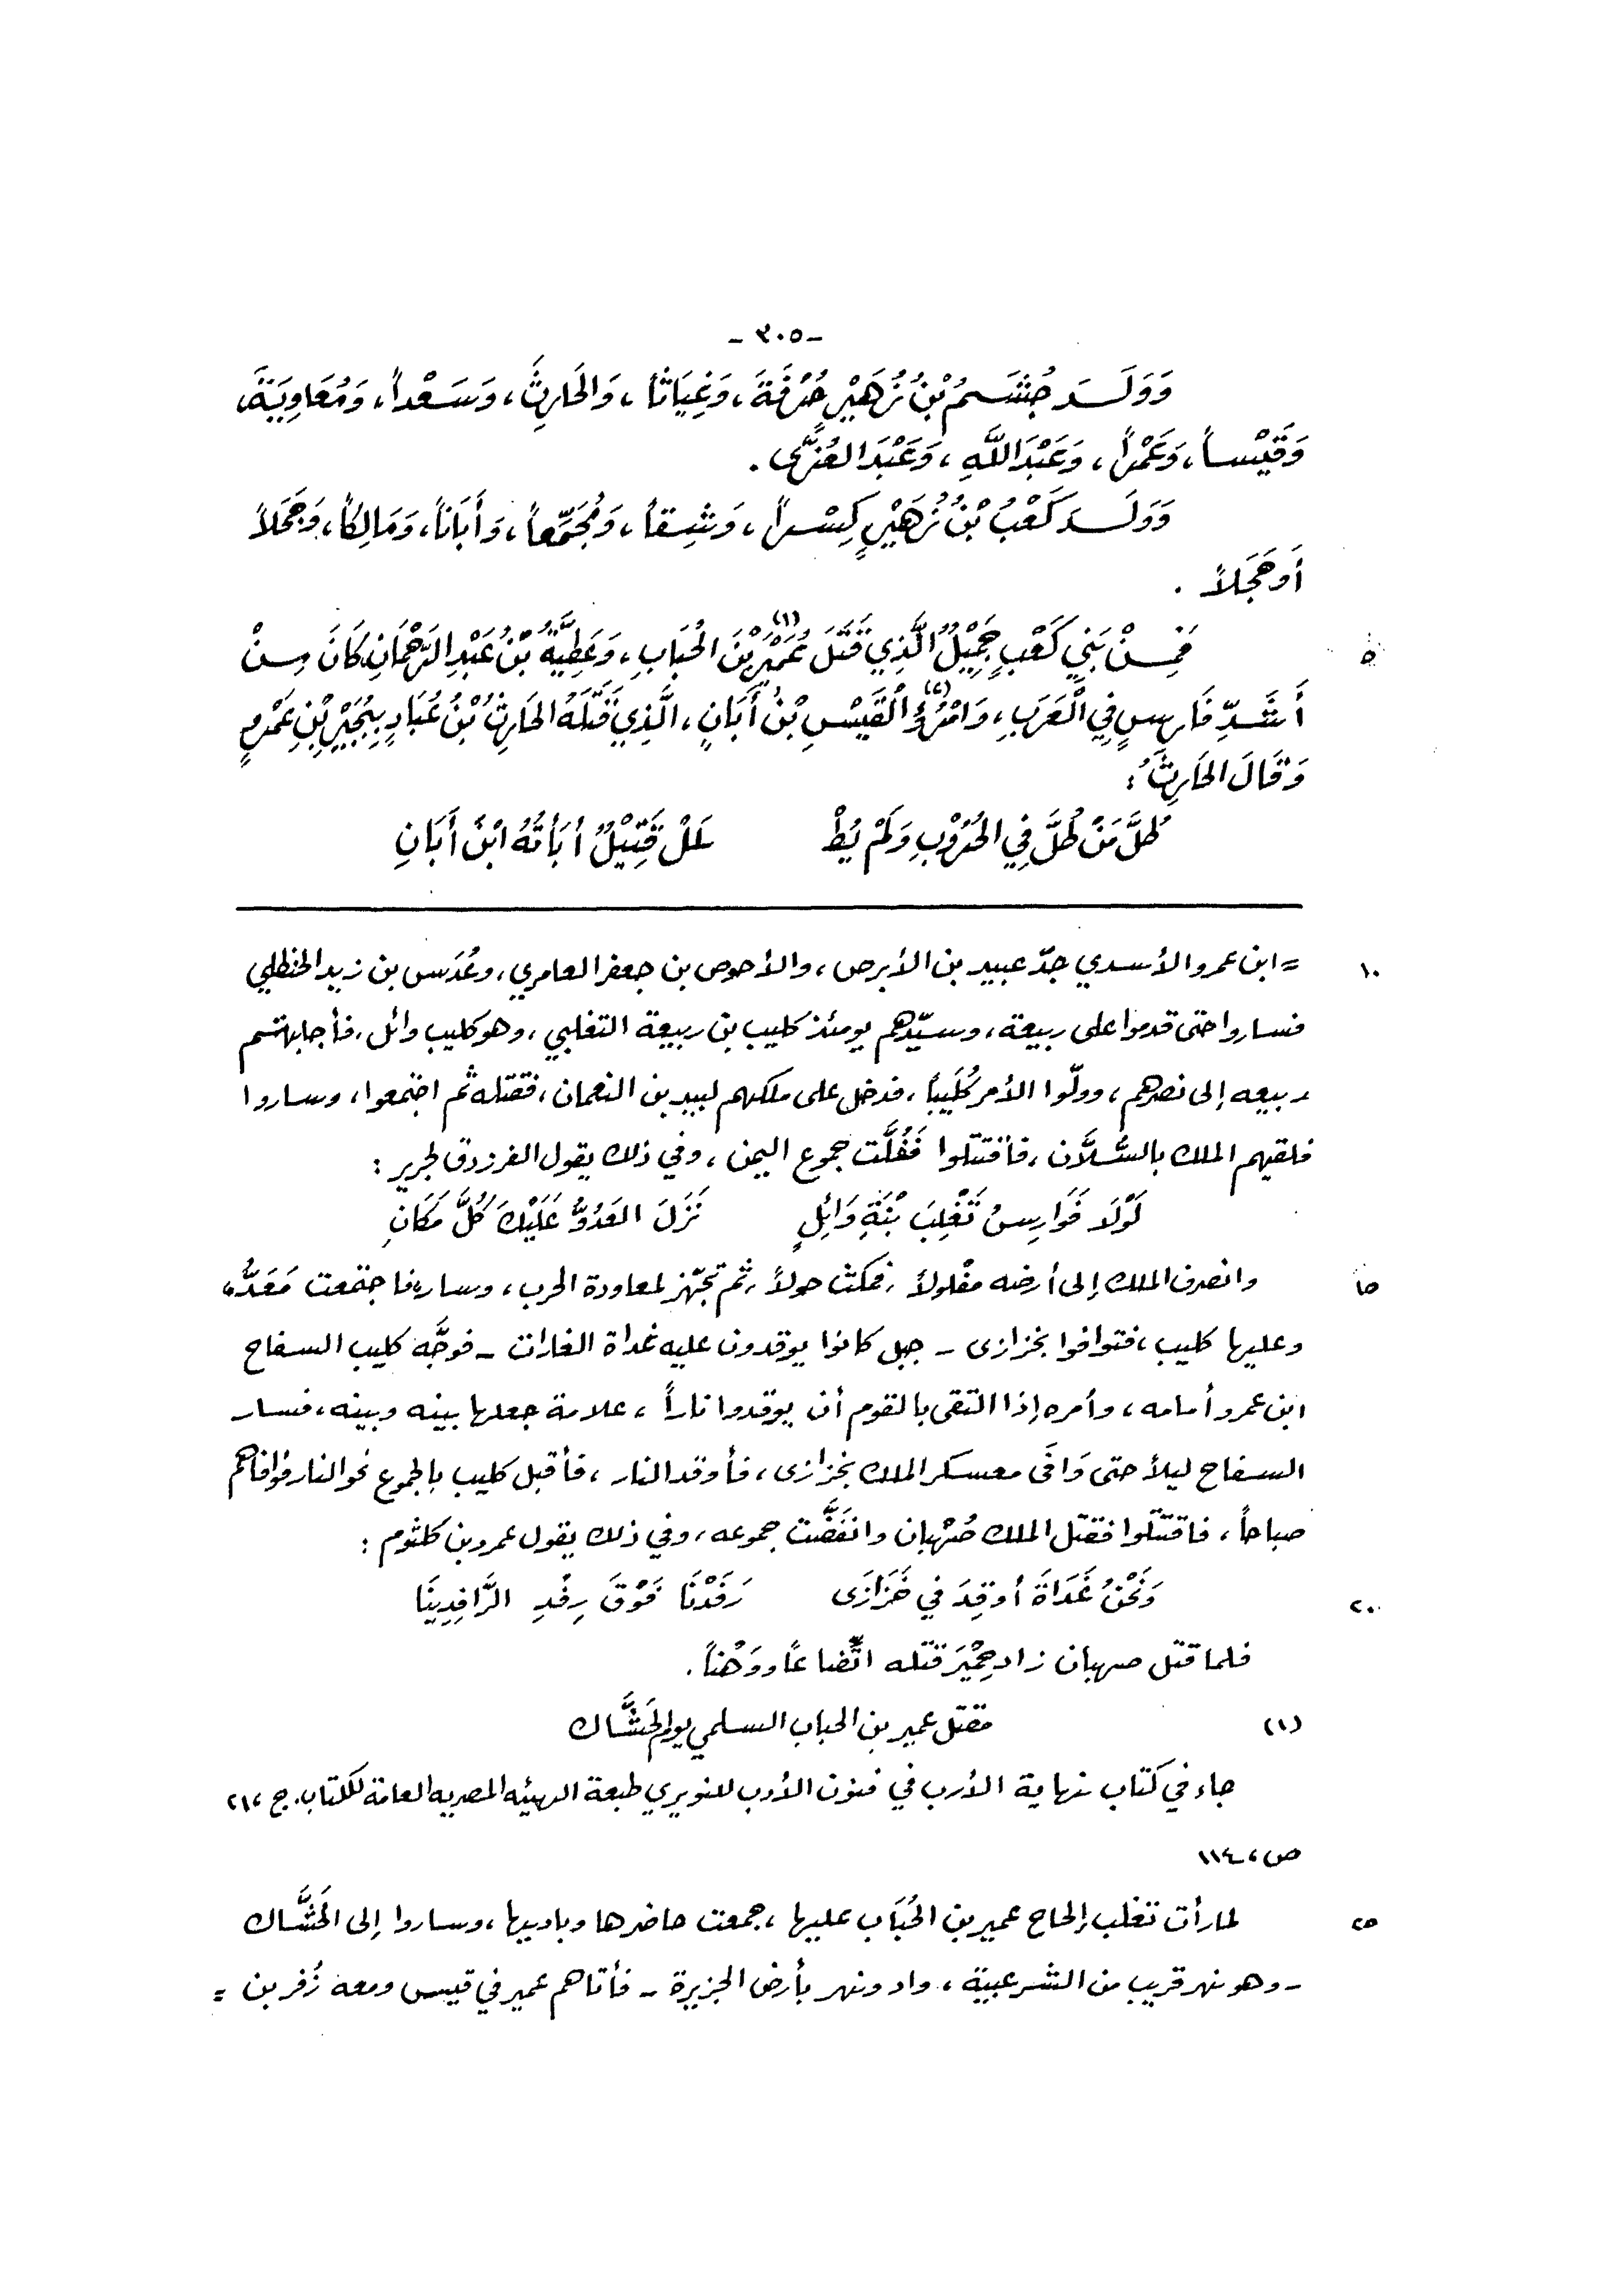 - ٣٠٥ -
وَوَلَـدَ جُشَـمُ بْنُ زُهَيْرٍ حُرْفَةَ، وَغِيَاثاً، وَالحَارِثَ، وَسَعْداً، وَمُعَاوِيَةَ،
وَقَيْساً، وَعَمْراً، وَعَبْدَ اللَّهِ، وَعَبْدَ العُزَّى.
وَوَلَـدَ كَعْبُ بْنُ زُهَيْرٍ كِسْراً، وَشِقاً، وَمُجَمِّعاً، وَأَبَاناً، وَمَالِكاً، وَجَحْلاً
أَو حَجَلاً.
٥ فَمِـنْ بَنِي كَعْبٍ جَمِيْلُ الَّذِي قَتَلَ عُمَيْرَ(١) بْنَ الحُبَابِ، وَعَطِيَّةُ بْنُ عَبْدِ الرَّحْمَانِ كَانَ مِـنْ
أَشَـدِّ فَارِسٍ فِي الْعَرَبِ، وَامْرُؤُ(٢) الْقَيْسِ بْنُ أَبَانٍ، الَّذِي قَتَلَهُ الحَارِثُ بْنُ عُبَادٍ بِبُجَيْرِ بْنِ عَمْرٍو
وَقَالَ الحَارِثُ:
طُلَّ مَنْ طُلَّ فِي الحُرُوْبِ وَلَمْ يُطْ لَلْ قَتِيْلٌ أَبَأْتُهُ ابْنُ أَبَانِ
١٠ = ابن عمرو الأسدي جدّ عبيد بن الأبرص، والأحوص بن جعفر العامري، وعُدَس بن زيد الحنظلي
فساروا حتى قدموا على ربيعة، وسيّدهم يومئذ كليب بن ربيعة التغلبي، وهو كليب وائل، فأجابهتهم
ربيعه إلى نصرهم، وولّوا الأمر كُلَيباً، فدخل على ملكهم لبيد بن النعمان، فقتله ثم اجتمعوا، وساروا
فلقيهم الملك بالسُّلاَّن، فاقتتلوا فَفُلَّت جموع اليمن، وفي ذلك يقول الفرزدق لجرير:
لَوْلاَ فَوَارِسُ تَغْلِبَ بْنَةِ وَائِلٍ نَزَلَ العَدُوُّ عَلَيْكَ كُلَّ مَكَانِ
١٥ وانصرف الملك إلى أرضه مفْلولاً، فمكث حولاً، ثم تجهّز لمعاودة الحرب، وسار، فاجتمعت مَعَدُّ،
وعليها كليب، فتوافوا بخزازى - جبل كانوا يوقدون عليه غداة الغارات - فوجَّه كليب السفاح
ابن عمرو أمامه، وأمره إذا التقى بالقوم أن يوقدوا ناراً، علامة جعلها بينه وبينه، فسار
السفاح ليلاً حتى وَافَى معسكر الملك بخزازى، فأوقد النار، فأقبل كليب بالجموع نحو النار فوافاهم
صباحاً، فاقتتلوا فقتل الملك صُهْبان وانفَضَّت جموعه، وفي ذلك يقول عمرو بن كلثوم:
٢٠ وَنَحْنُ غَدَاةَ أوقِدَ في خَزَازَى رَفَدْنَا فَوْقَ رِفْدِ الرَّافِدِينَا
فلما قتل صهبان زاد حِمْيَرَ قتله اتِّضاعاً ووَهْناً.
(١) مقتل عمير بن الحباب السلمي يوم الحَشَّاك
جاء في كتاب نهاية الأرب في فنون الأدب للنويري طبعة الهيئه المصريه العامة للكتاب. ج، ٢١
ص، ١١٤
٢٥ لما رأت تغلب إلحاح عمير بن الحُبَاب عليها، جمعت حاضرها وباديها، وساروا إلى الحَشَّاك
- وهو نهر قريب من الشرعبية، واد ونهر بأرض الجزيرة - فأتاهم عمير في قيس ومعه زُفر بن =